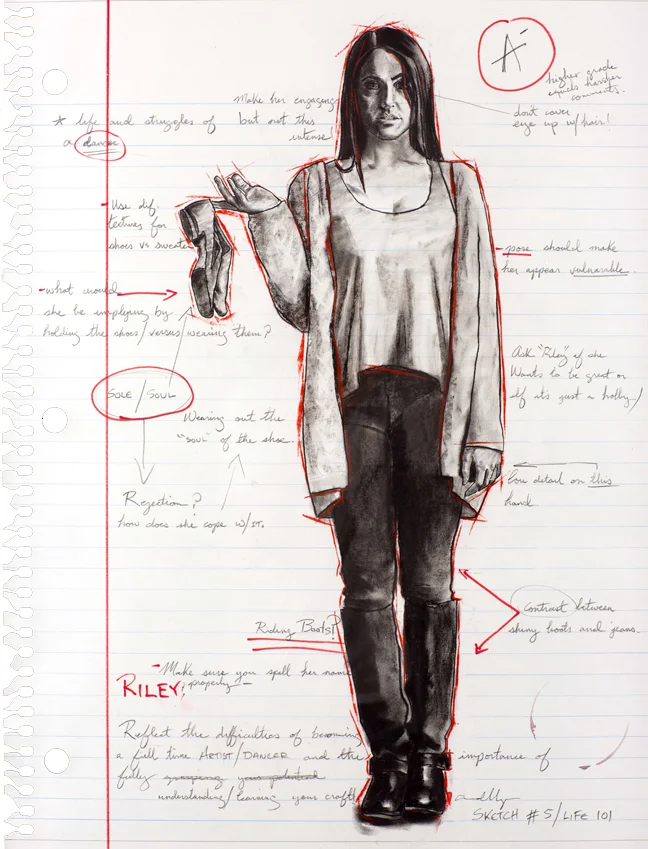 A-
higher grade
equals harsher
comments.
Make her engaging
but not this
intense!
don't cover
eye up w/hair!
* life and struggles of
a dancer
Use dif.
textures for
shoes vs sweater
- pose should make
her appear vulnerable.
- what would
she be implying by
holding the shoes/versus/wearing them?
Ask "Riley" if she
Wants to be great or
if it's just a hobby/
SOLE / SOUL
Wearing out the
"soul" of the shoe.
low detail on this
hand.
Rejection?
how does she cope w/it.
contrast between
shiny boots and jeans.
Riding Boots?
- Make sure you spell her name
properly -
RILEY!
Reflect the difficulties of becoming
a full time ARTIST/DANCER and the importance of
fully grasping your potential
understanding/learning your craft
SKETCH # 5/LIFE 101